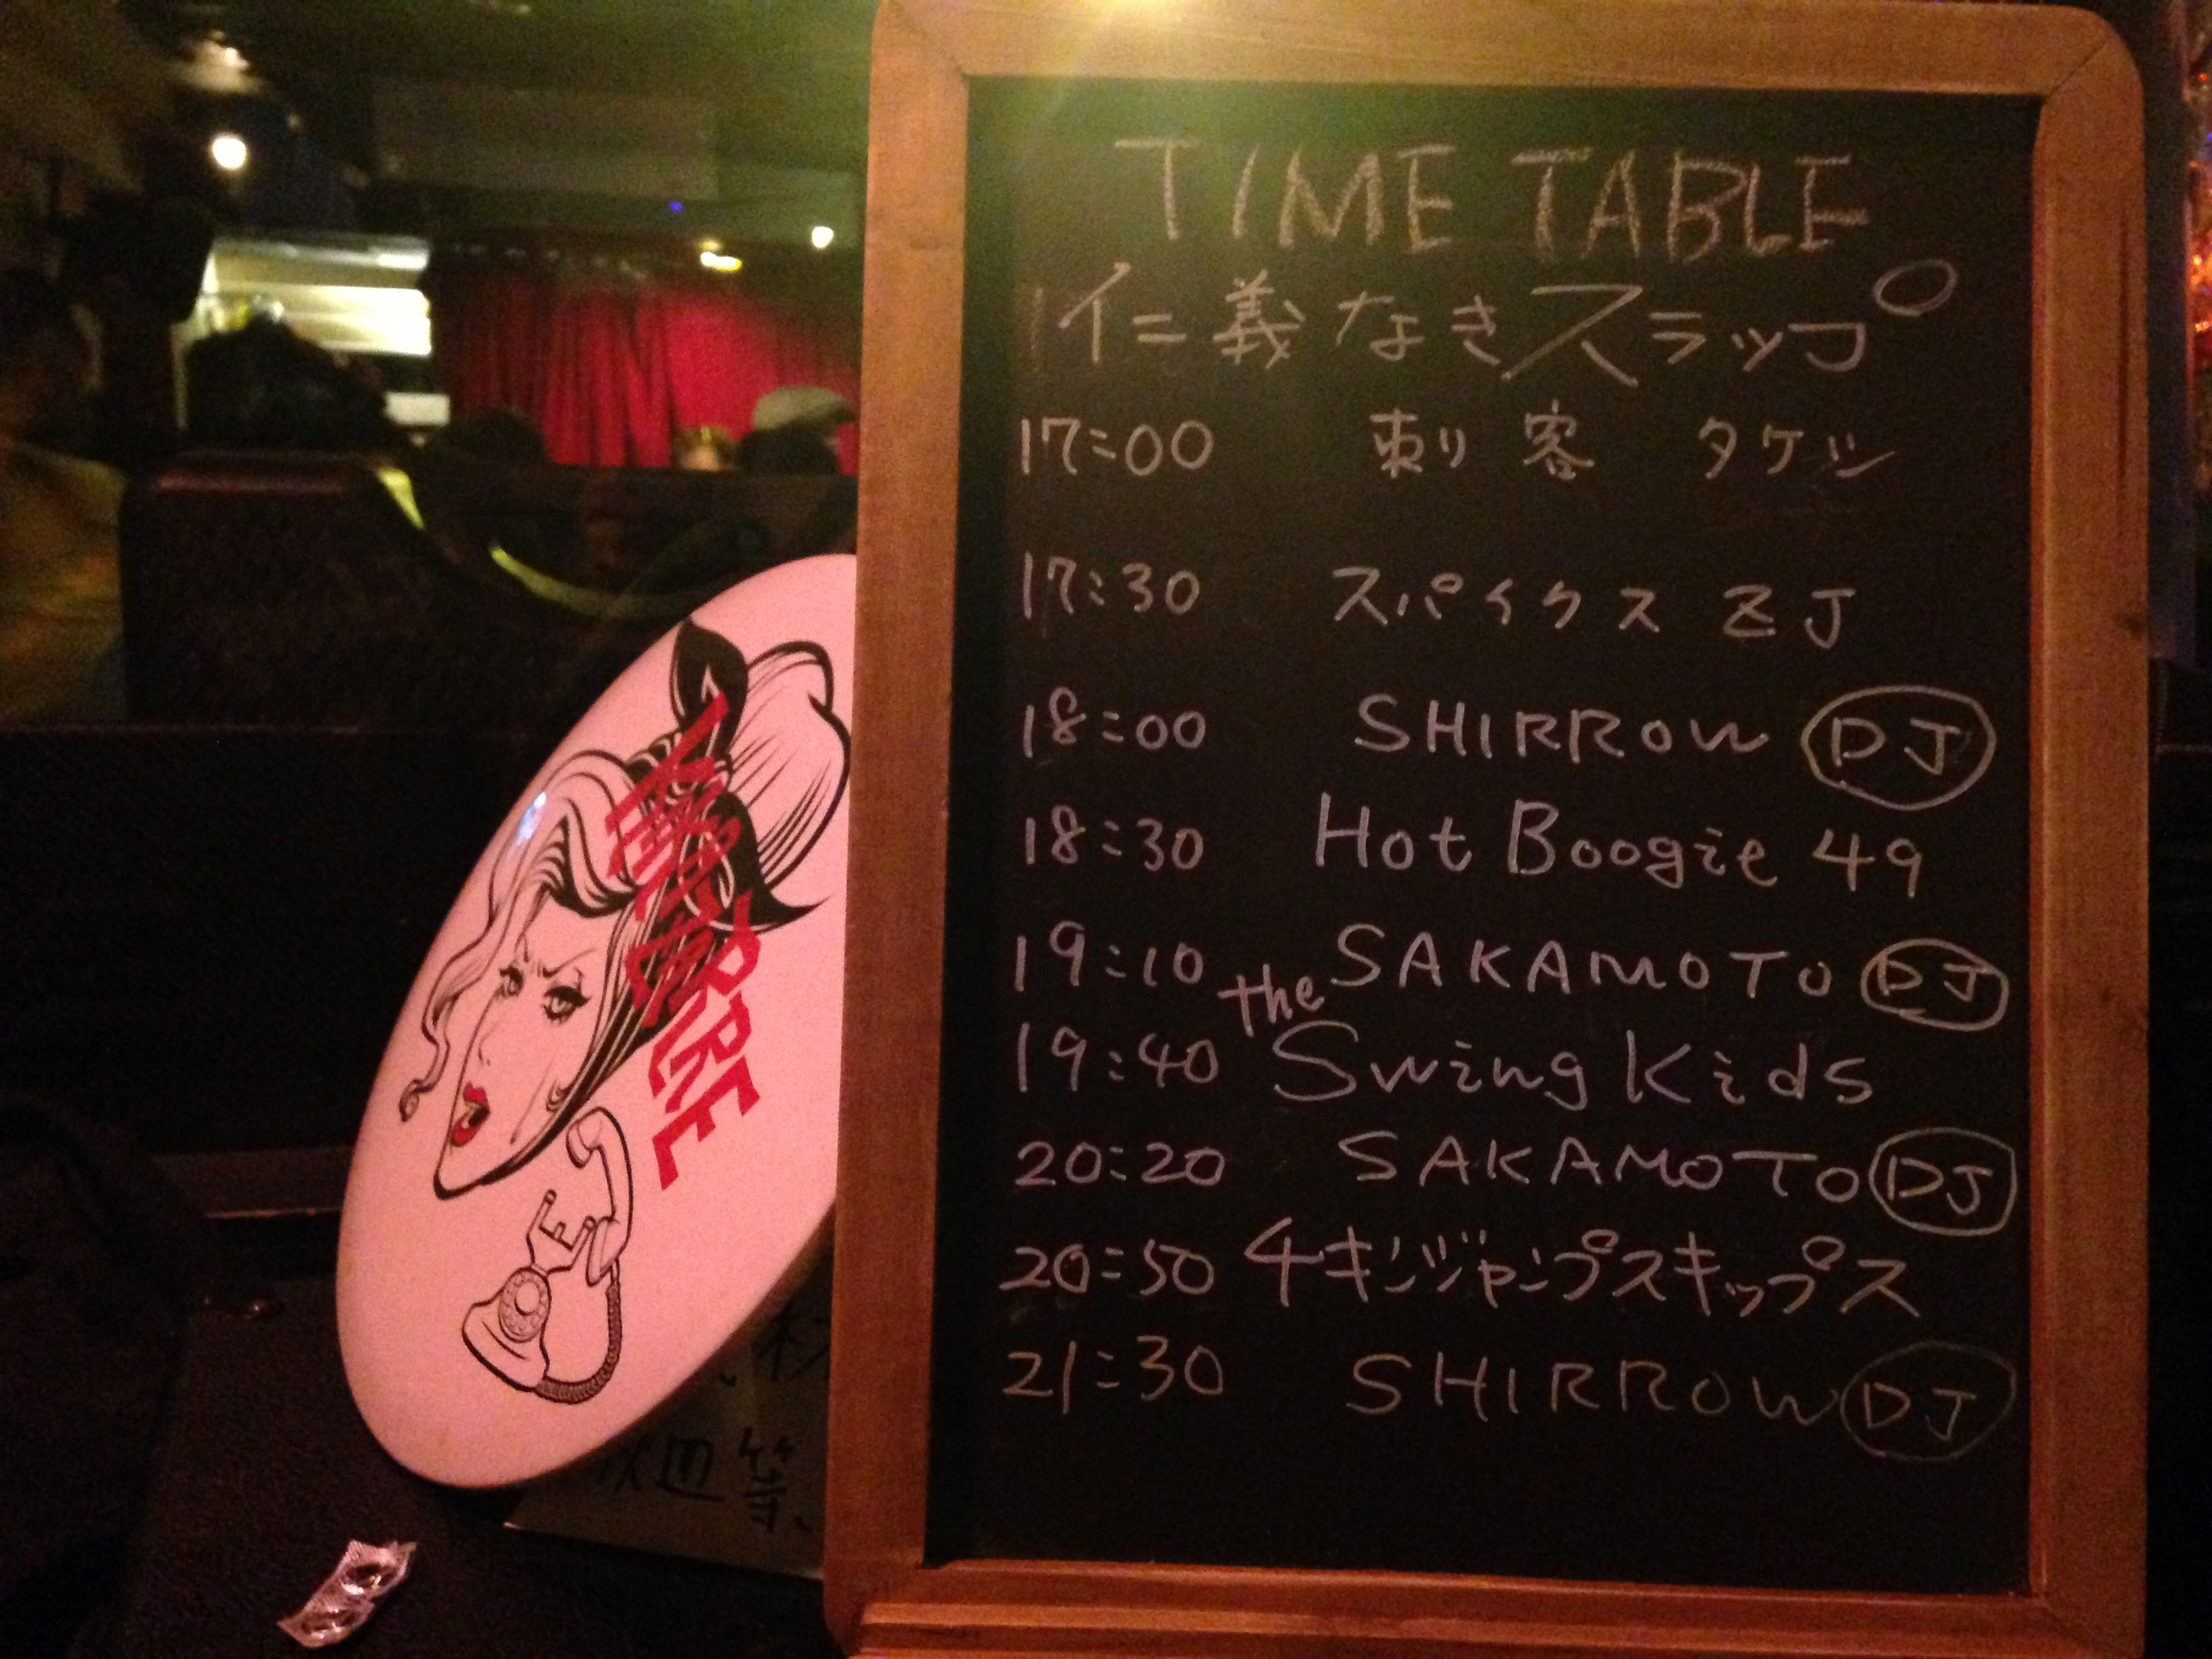 TIME TABLE
仁義なきスラップ
17:00 刺客 タケシ
17:30 スパイクス ZJ
18:00 SHIRROW DJ
18:30 Hot Boogie 49
19:10 SAKAMOTO DJ
19:40 the Swing Kids
20:20 SAKAMOTO DJ
20:50 チキンジャンプスキップス
21:30 SHIRROW DJ
等、